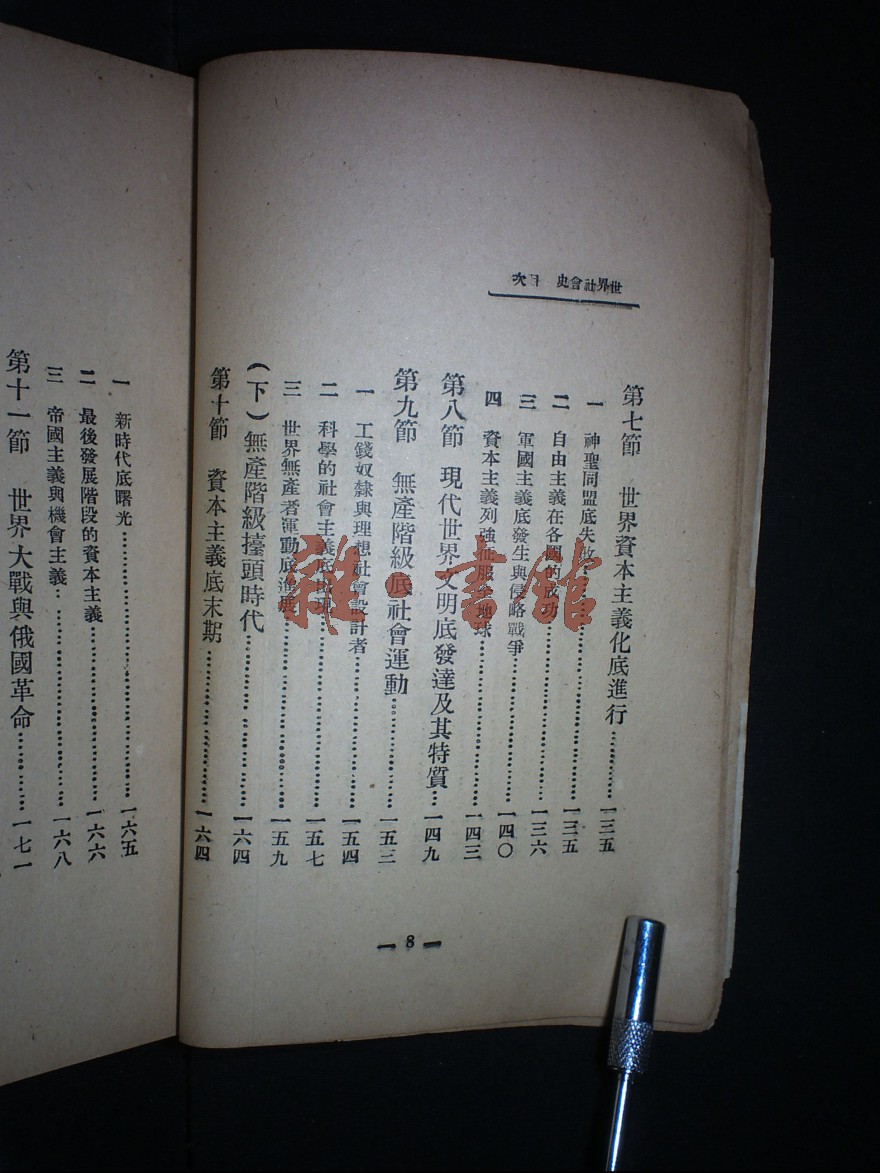 世界社會史 目次
第七節 世界資本主義化底進行…………一三五
一 神聖同盟底失敗…………一三五
二 自由主義在各國的成功…………一三六
三 軍國主義底發生與侵略戰爭…………一四〇
四 資本主義列強征服全地球…………一四三
第八節 現代世界文明底發達及其特質…一四九
第九節 無產階級底社會運動…………一五三
一 工錢奴隸與理想社會設計者…………一五四
二 科學的社會主義底出現…………一五七
三 世界無產者運動底進展…………一五九
(下)無產階級擡頭時代…………一六四
第十節 資本主義底末期…………一六四
— 8 —
一 新時代底曙光…………一六五
二 最後發展階段的資本主義…………一六六
三 帝國主義與機會主義…………一六八
第十一節 世界大戰與俄國革命…………一七一
雜·書館